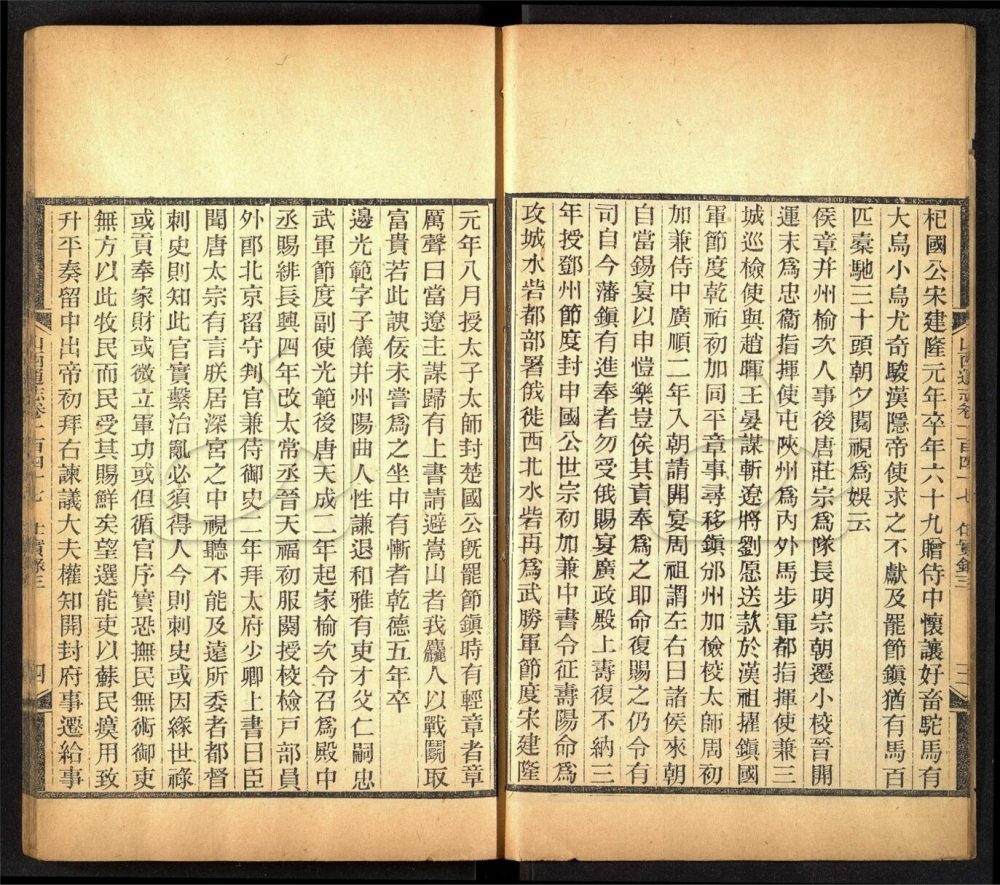 杞國公宋建隆元年卒年六十九贈侍中懷讓好畜駝馬有
大烏小烏尤奇駿漢隱帝使求之不獻及罷節鎮猶有馬百
匹橐馳三十頭朝夕閱視爲娛云
侯章并州榆次人事後唐莊宗爲隊長明宗朝遷小校晉開
運末爲忠衞指揮使屯陝州爲內外馬步軍都指揮使兼三
城巡檢使與趙暉王晏謀斬遼將劉愿送款於漢祖擢鎮國
軍節度乾祐初加同平章事尋移鎮邠州加檢校太師周初
加兼侍中廣順二年入朝請開宴周祖謂左右曰諸侯來朝
自當錫宴以申愷樂豈俟其貢奉爲之耶命復賜之仍令有
司自今藩鎮有進奉者勿受俄賜宴廣政殿上壽復不納三
年授鄧州節度封申國公世宗初加兼中書令征壽陽命爲
攻城水砦都部署俄徙西北水砦再爲武勝軍節度宋建隆
元年八月授太子太師封楚國公旣罷節鎮時有輕章者章
厲聲曰當遼主謀歸有上書請避嵩山者我麤人以戰鬭取
富貴若此諛佞未嘗爲之坐中有慚者乾德五年卒
邊光範字子儀并州陽曲人性謙退和雅有吏才父仁嗣忠
武軍節度副使光範後唐天成二年起家榆次令召爲殿中
丞賜緋長興四年改太常丞晉天福初服闋授校檢戸部員
外郎北京留守判官兼侍御史二年拜太府少卿上書曰臣
聞唐太宗有言朕居深宮之中視聽不能及遠所委者都督
刺史則知此官實繫治亂必須得人今則刺史或因緣世祿
或貢奉家財或微立軍功或但循官序實恐撫民無術御吏
無方以此牧民而民受其賜鮮矣望選能吏以蘇民瘼用致
升平奏留中出帝初拜右諫議大夫權知開封府事遷給事
山西通志卷一百四十七
仕實錄三
四